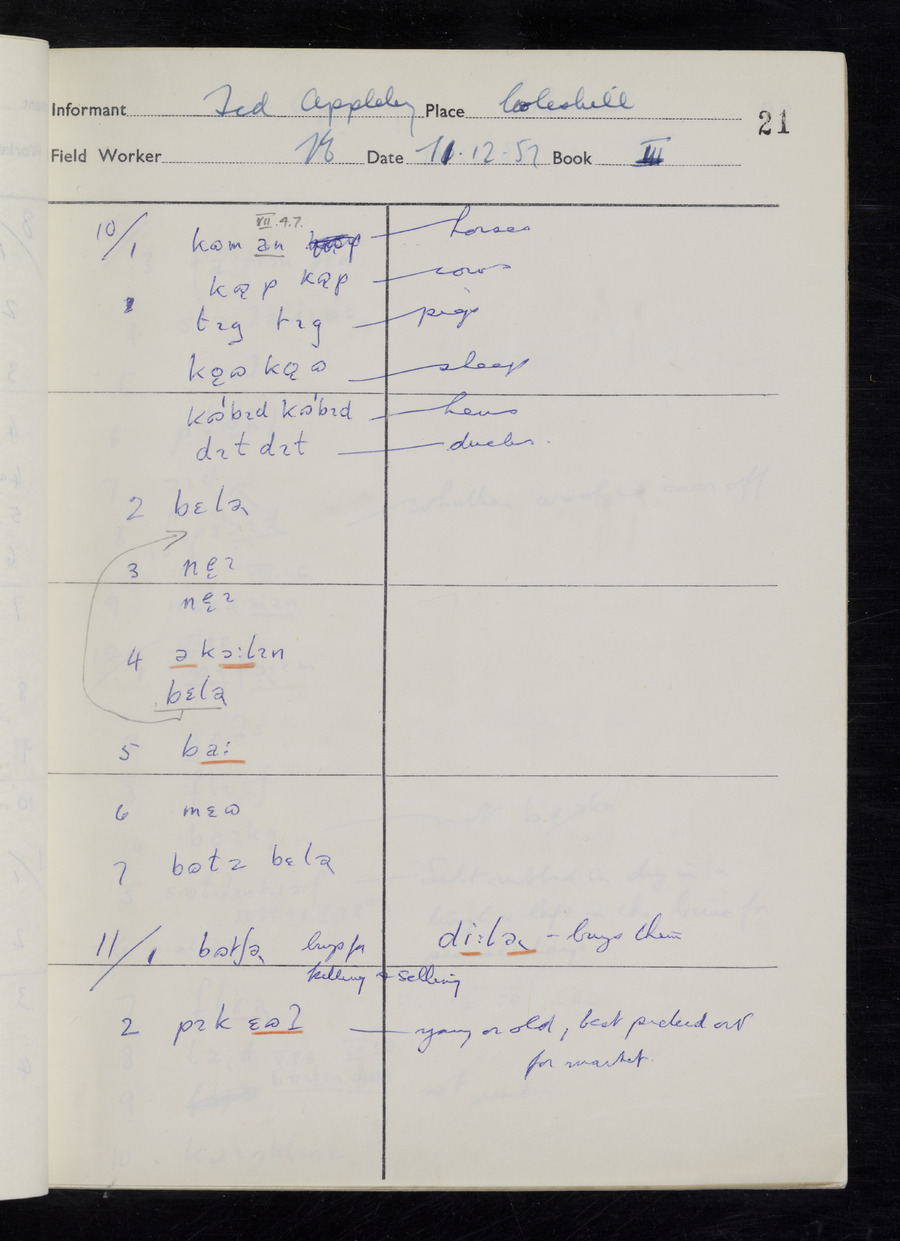 Informant Ted Appleby Place Coleshill 21
Field Worker Date 11.12.57 Book III
VII.4.7.
10/1 kɷm ən — horses
kąp kąp — cows
tɪg tɪg — pigs
kǫɷ kǫɷ — sheep
kɷ'bɪd kɷ'bɪd — hens
dɪt dɪt — ducks.
2 bɛlə
3 nęɪ
nęɪ
4 ə kɔ:lɪn
bɛlə
5 ba:
6 mɛɷ
7 bɷtɪ bɛlə
11/1 bɷtʃə buys for di:lə - buys them
killing + selling
2 pɪk ɛɷʔ — young or old, best picked out
for market.